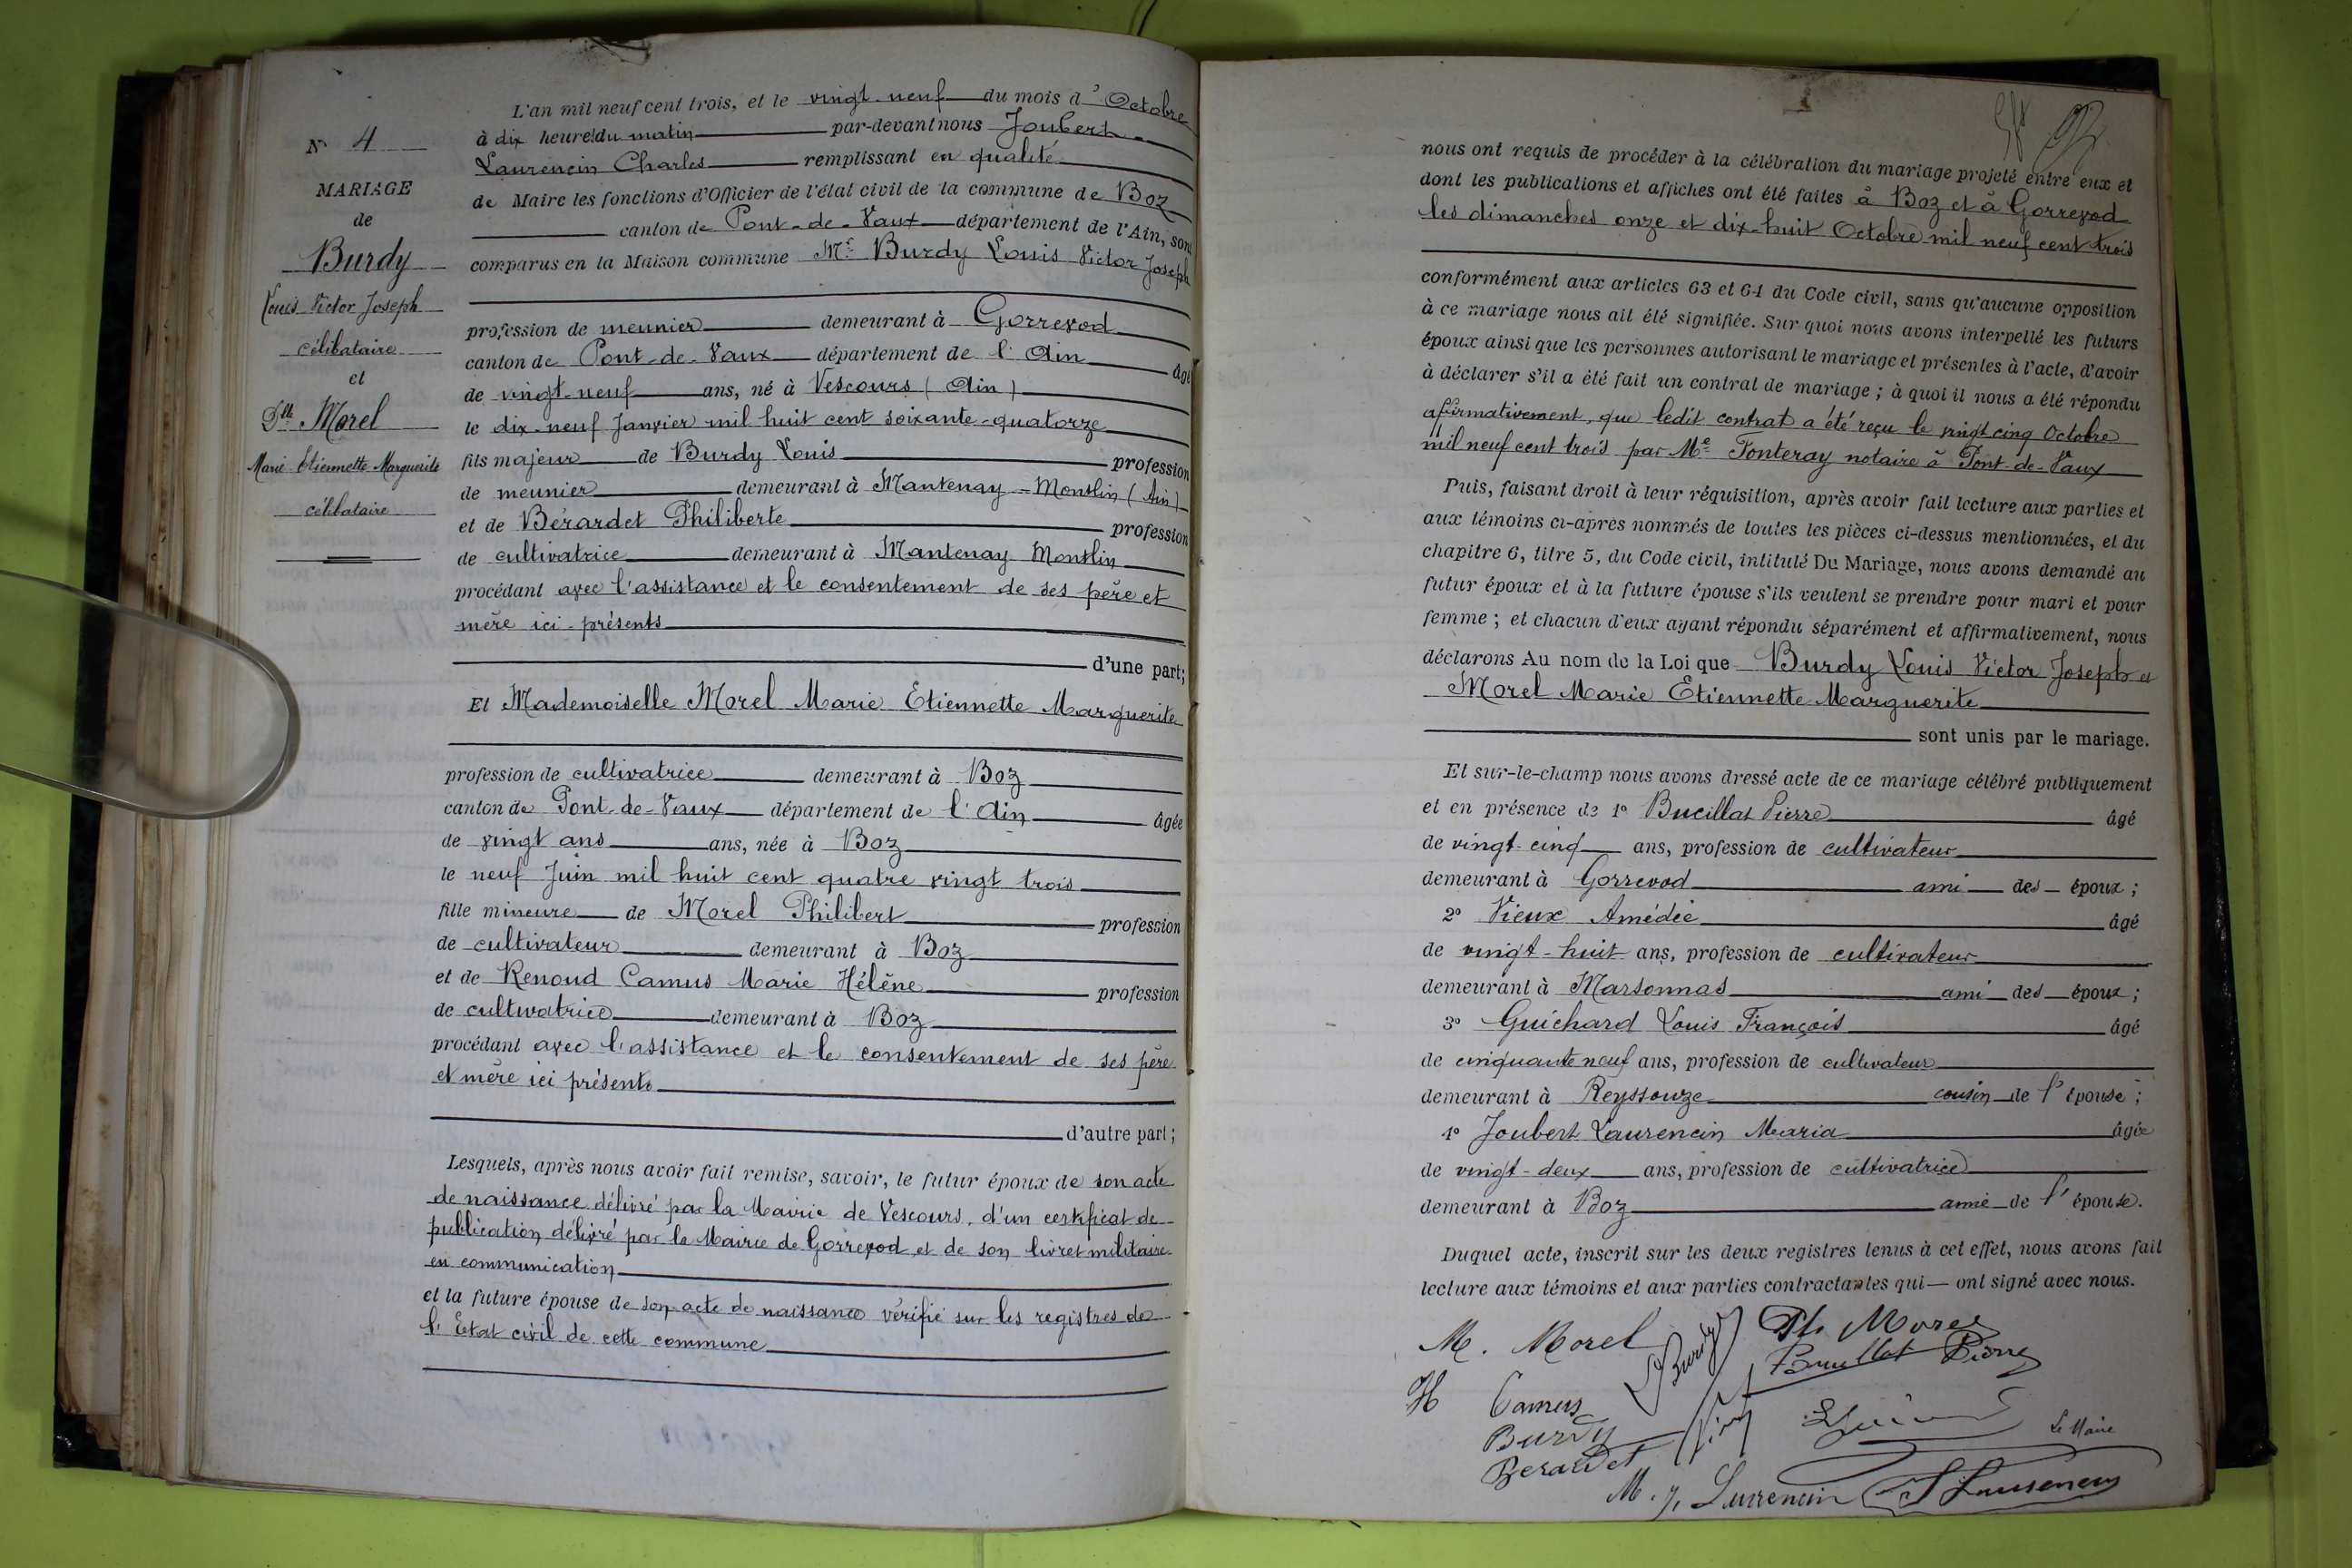 N° 4
MARIAGE
de
Burdy
Louis Victor Joseph
célibataire
et
Dlle Morel
Marie Etiennette Marguerite
célibataire
L'an mil neuf cent trois, et le vingt-neuf du mois d'Octobre
à dix heures du matin par-devant nous Joubert-
Laurencin Charles remplissant en qualité
de Maire les fonctions d'Officier de l'état civil de la commune de Boz
canton de Pont-de-Vaux département de l'Ain, sont
comparus en la Maison commune Mr Burdy Louis Victor Joseph
profession de meunier demeurant à Gorrevod
canton de Pont-de-Vaux département de l'Ain âgé
de vingt-neuf ans, né à Vescours (Ain)
le dix-neuf Janvier mil huit cent soixante-quatorze
fils majeur de Burdy Louis profession
de meunier demeurant à Mantenay-Montlin (Ain)
et de Bérardet Philiberte profession
de cultivatrice demeurant à Mantenay Montlin
procédant avec l'assistance et le consentement de ses père et
mère ici-présents
d'une part;
Et Mademoiselle Morel Marie Etiennette Marguerite
profession de cultivatrice demeurant à Boz
canton de Pont-de-Vaux département de l'Ain âgée
de vingt ans ans, née à Boz
le neuf Juin mil huit cent quatre vingt trois
fille mineure de Morel Philibert profession
de cultivateur demeurant à Boz
et de Renoud Camus Marie Hélène profession
de cultivatrice demeurant à Boz
procédant avec l'assistance et le consentement de ses père
et mère ici présents
d'autre part;
Lesquels, après nous avoir fait remise, savoir, le futur époux de son acte
de naissance délivré par la Mairie de Vescours, d'un certificat de
publication délivré par la Mairie de Gorrevod et de son livret militaire
en communication
et la future épouse de son acte de naissance vérifié sur les registres de
l'Etat civil de cette commune
nous ont requis de procéder à la célébration du mariage projeté entre eux et
dont les publications et affiches ont été faites à Boz et à Gorrevod
les dimanches onze et dix-huit Octobre mil neuf cent trois
conformément aux articles 63 et 64 du Code civil, sans qu'aucune opposition
à ce mariage nous ait été signifiée. Sur quoi nous avons interpellé les futurs
époux ainsi que les personnes autorisant le mariage et présentes à l'acte, d'avoir
à déclarer s'il a été fait un contrat de mariage; à quoi il nous a été répondu
affirmativement, que ledit contrat a été reçu le vingt cinq Octobre
mil neuf cent trois par Me Fonteray notaire à Pont-de-Vaux
Puis, faisant droit à leur réquisition, après avoir fait lecture aux parties et
aux témoins ci-après nommés de toutes les pièces ci-dessus mentionnées, et du
chapitre 6, titre 5, du Code civil, intitulé Du Mariage, nous avons demandé au
futur époux et à la future épouse s'ils veulent se prendre pour mari et pour
femme; et chacun d'eux ayant répondu séparément et affirmativement, nous
déclarons Au nom de la Loi que Burdy Louis Victor Joseph et
Morel Marie Etiennette Marguerite
sont unis par le mariage.
Et sur-le-champ nous avons dressé acte de ce mariage célébré publiquement
et en présence de 1° Bucillat Pierre âgé
de vingt-cinq ans, profession de cultivateur
demeurant à Gorrevod ami des époux;
2° Vieux Amédée âgé
de vingt-huit ans, profession de cultivateur
demeurant à Marsonnas ami des époux;
3° Guichard Louis François âgé
de cinquante neuf ans, profession de cultivateur
demeurant à Reyssouze cousin de l'épouse;
4° Joubert Laurencin Maria âgée
de vingt-deux ans, profession de cultivatrice
demeurant à Boz amie de l'épouse.
Duquel acte, inscrit sur les deux registres tenus à cet effet, nous avons fait
lecture aux témoins et aux parties contractantes qui ont signé avec nous.
M. Morel
L. Burdy
Ph. Morel
Bucillat Pierre
H Camus
Burdy
Berardet
Le Maire
M. J. Laurencin
J Laurencin